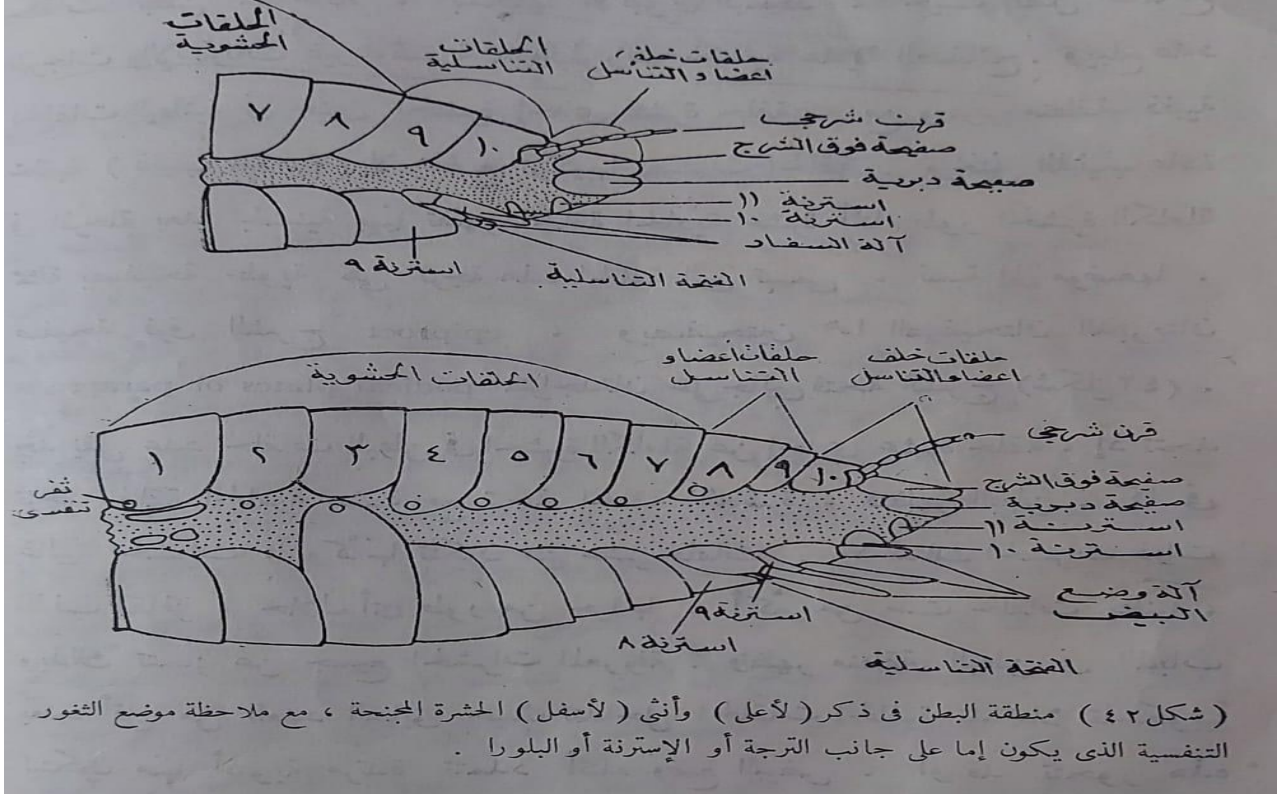 الحلقات
الحشوية
الحلقات
التناسلية
حلقات خلف
اعضاء التناسل
٧ ٨ ٩ ١٠
قرن شرجى
صفيحة فوق الشرج
صفيحة دبرية
استرنة ١١
استرنة ١٠
آلة السفاد
استرنة ٩
الفتحة التناسلية
الحلقات الحشوية
حلقات أعضاء
التناسل
حلقات خلف
اعضاء التناسل
١ ٢ ٣ ٤ ٥ ٦ ٧ ٨ ٩ ١٠
قرن شرجى
ثغر
تنفسى
صفيحة فوق الشرج
صفيحة دبرية
استرنة ١١
استرنة ١٠
آلة وضع
البيض
استرنة ٩
استرنة ٨
الفتحة التناسلية
( شكل ٤٢ ) منطقة البطن فى ذكر ( لأعلى ) وأنثى ( لأسفل ) الحشرة المجنحة ، مع ملاحظة موضع الثغور
التنفسية الذى يكون إما على جانب الترجة أو الإسترنة أو البلورا .